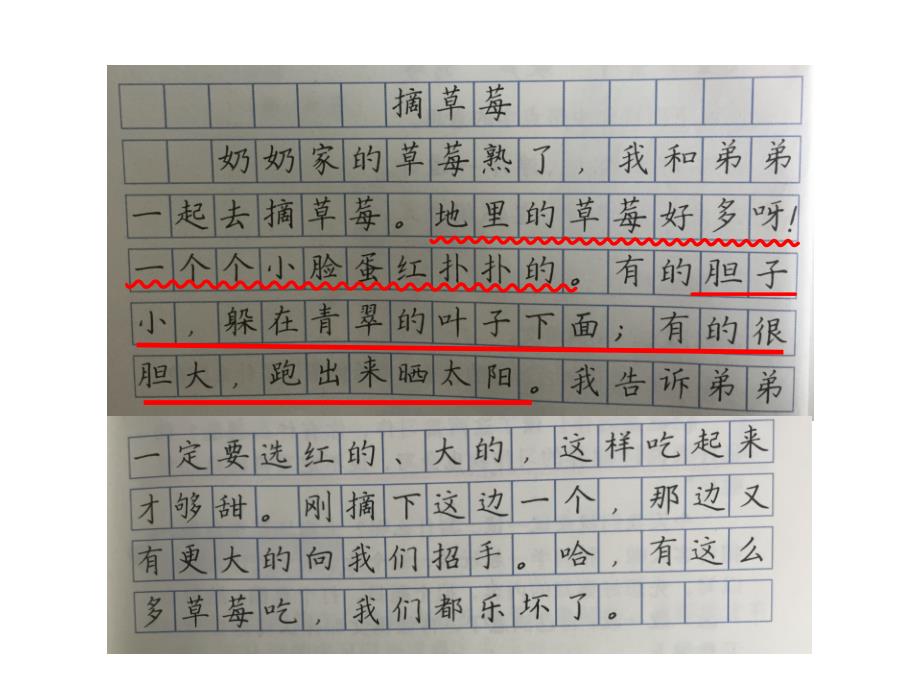 摘草莓
奶奶家的草莓熟了，我和弟弟
一起去摘草莓。地里的草莓好多呀！
一个个小脸蛋红扑扑的。有的胆子
小，躲在青翠的叶子下面；有的很
胆大，跑出来晒太阳。我告诉弟弟
一定要选红的、大的，这样吃起来
才够甜。刚摘下这边一个，那边又
有更大的向我们招手。哈，有这么
多草莓吃，我们都乐坏了。